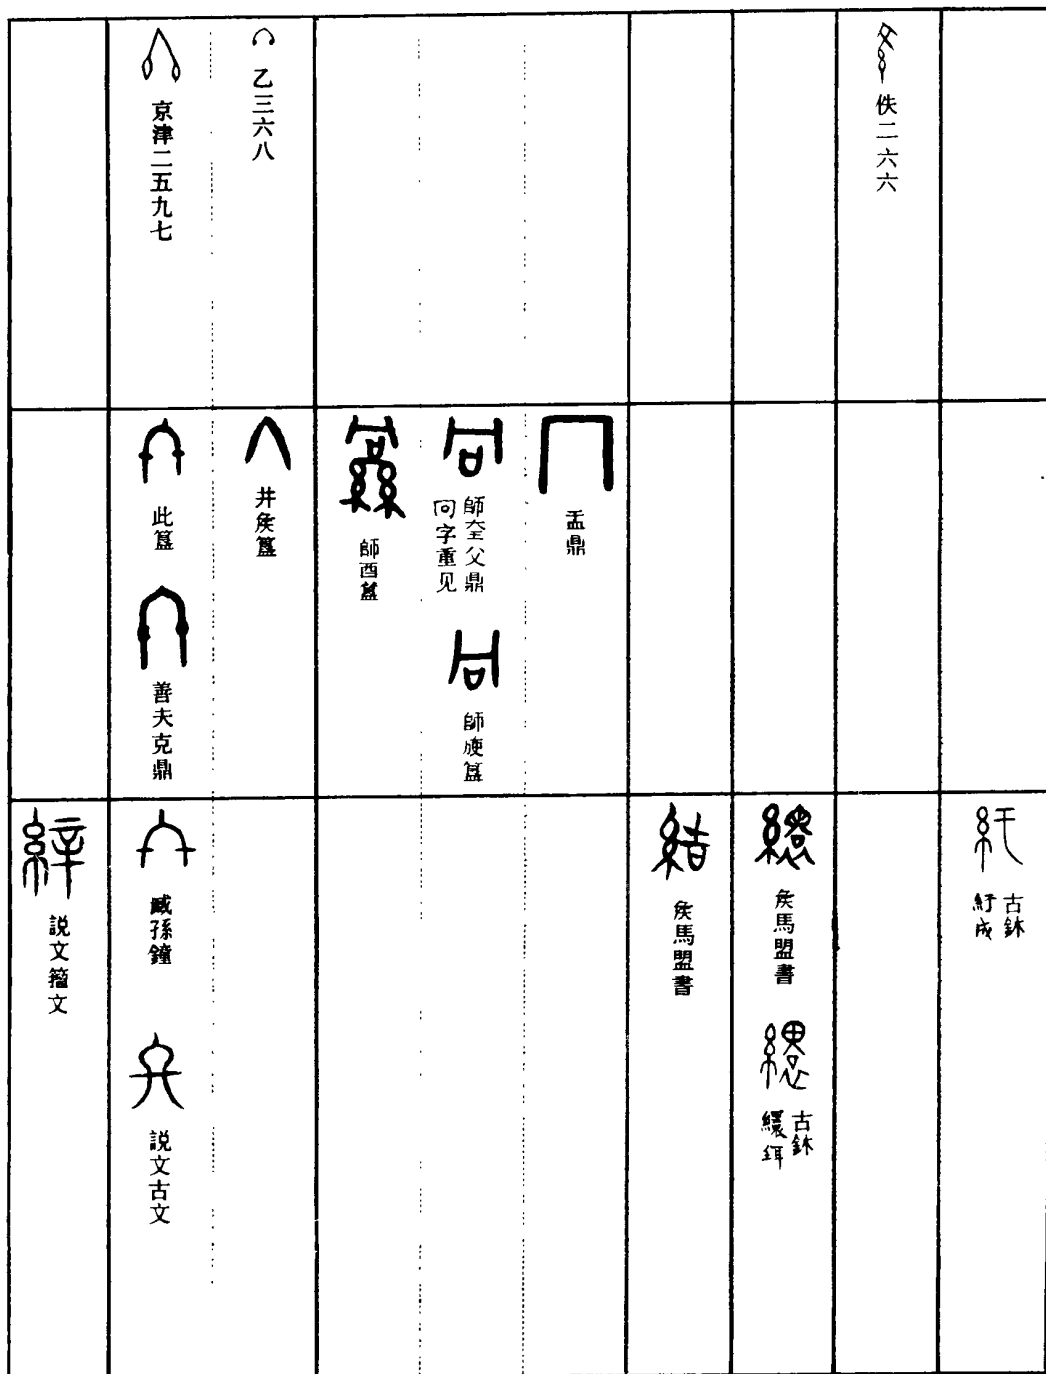 佚二六六
乙三六八
京津二五九七
盂鼎
師𡘇父鼎
冋字重见
師㾓簋
師酉簋
井矦簋
此簋
善夫克鼎
古鉥
紆成
矦馬盟書
古鉥
繯鉺
矦馬盟書
臧孫鐘
説文古文
説文籀文